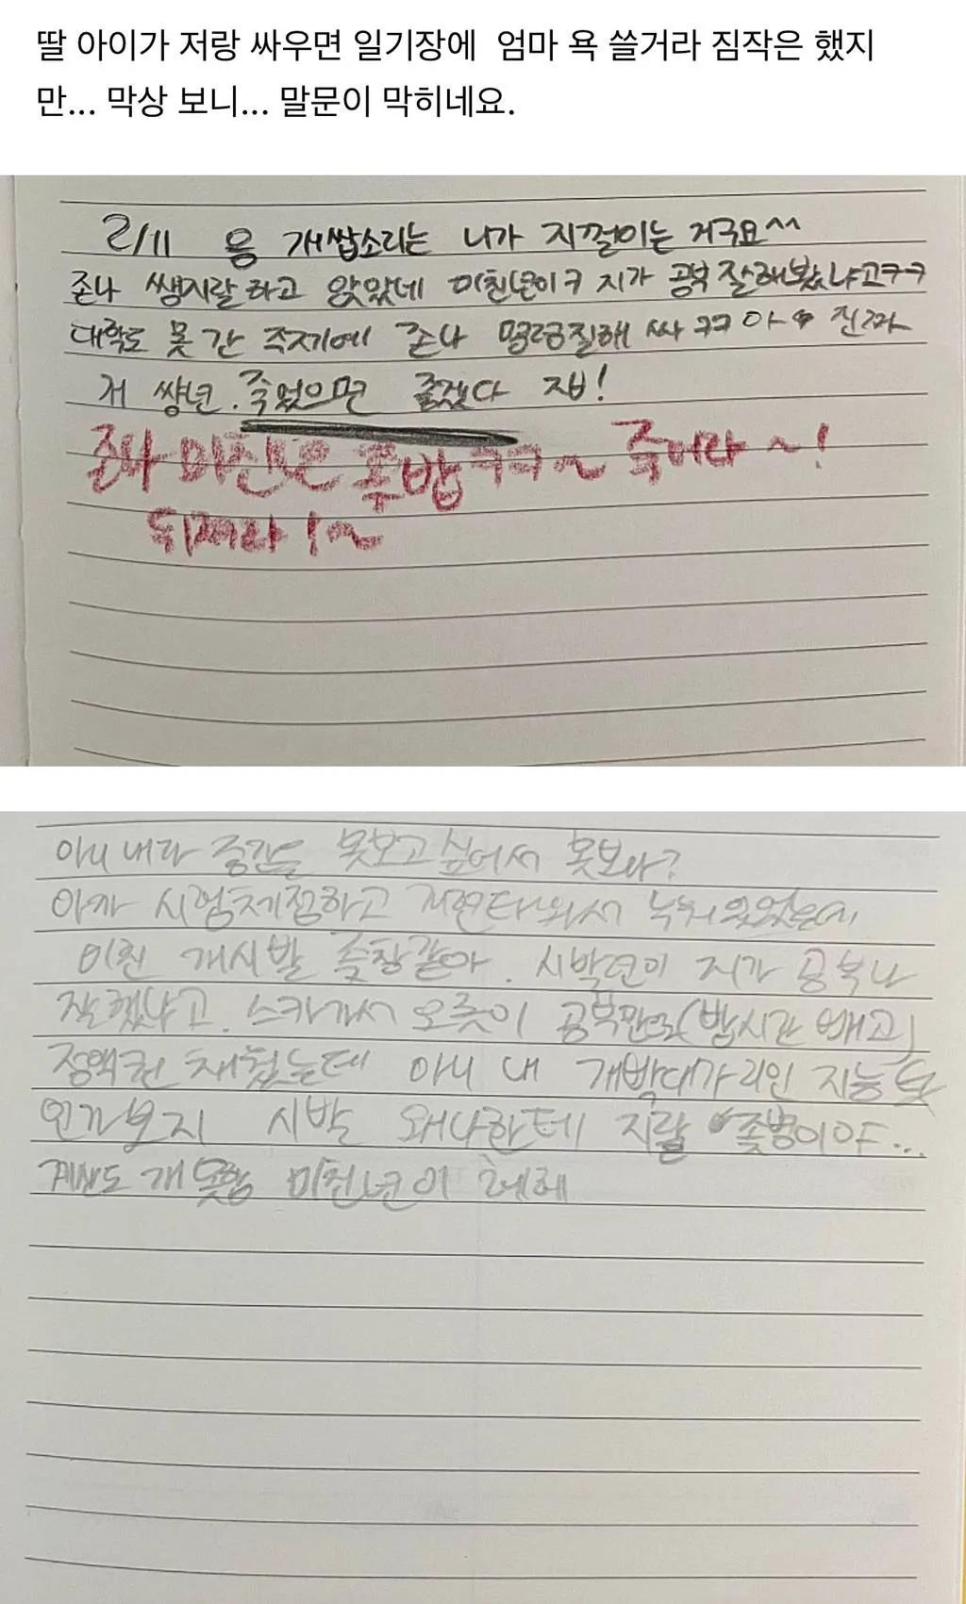 딸 아이가 저랑 싸우면 일기장에 엄마 욕 쓸거라 짐작은 했지
만... 막상 보니... 말문이 막히네요.
2/11 응 개쌉소리는 니가 지껄이는 거구요^^
존나 쌩지랄하고 앉았네 미친년이ㅋ 지가 공부 잘해봤냐고ㅋㅋ
대학도 못 간 주제에 존나 명령질해 싸 ㅋㅋ 아 진짜
저 썅년. 죽었으면 좋겠다 지발!
존나 미친년 좆밥 ㅋㅋ~ 죽어라~!
뒤져라!~
아니 내라 중간을 못보고 싶어서 못보나?
아까 시험채점하고 현타와서 누워있었는데
미친 개시발 좆창같아. 시발년이 지가 공부나
잘했냐고. 스카가서 오롯이 공부만으로(밥시간 빼고)
정액권 채웠는데 아니 내 개빡대가리인 지능도
인가보지 시발 왜 나한테 지랄 좆병이야...
계산도 개못함 미친년이 헤헤